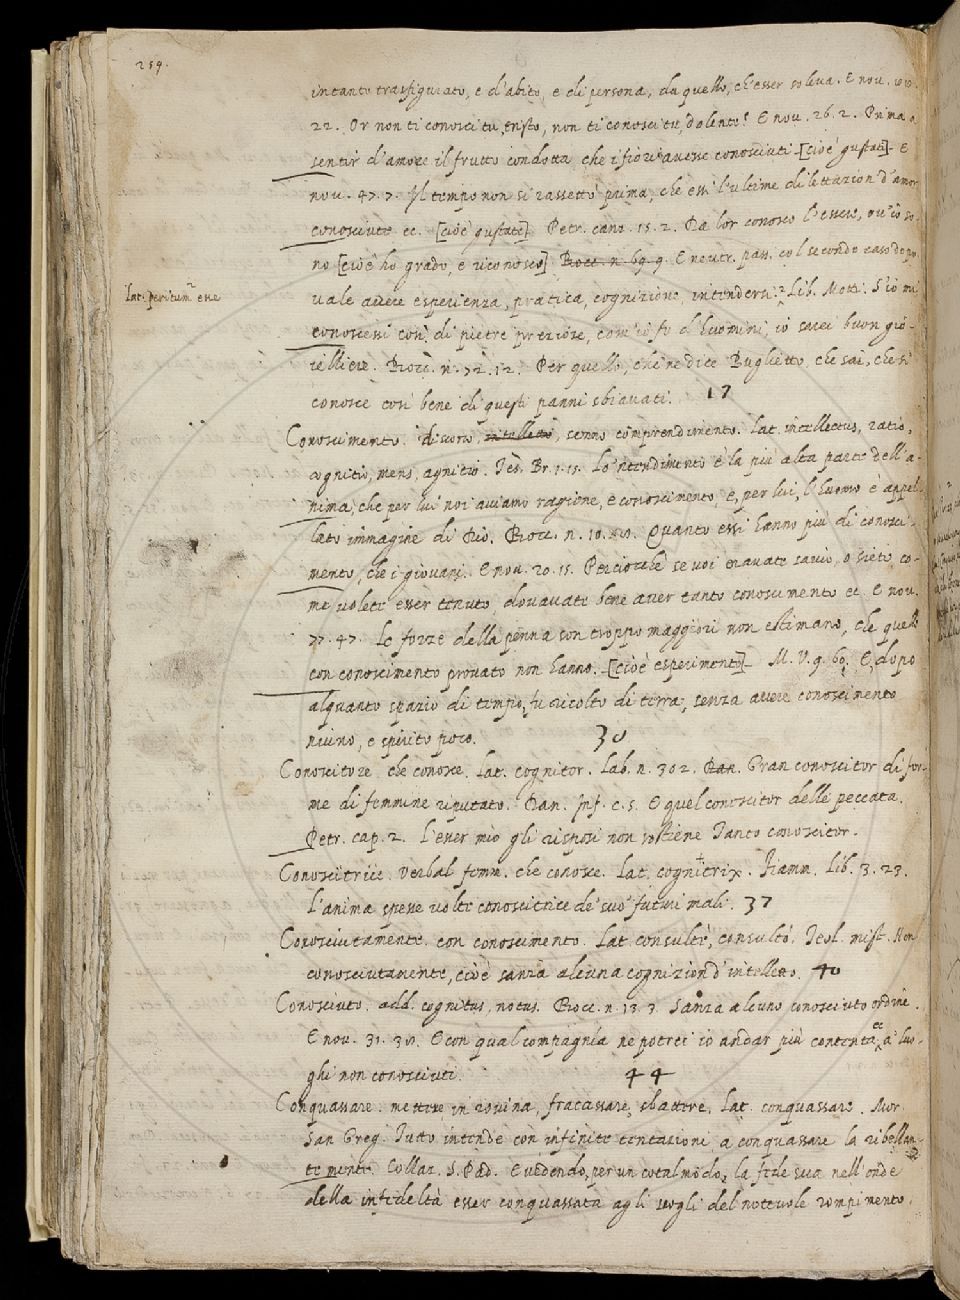 259.
intanto trasfigurato, e d'abito, e di persona, da quello, ch'esser soleva. E nov.
22. Or non ti conosci tu, tristo, non ti conosci tu, dolente? E nov. 26. 2. Prima a
sentir d'amore il frutto condotta, che i fiori avesse conosciuti [cioè gustati] E
nov. 47. 7. Il tempo non si rassettò prima, che essi l'ultime dilettazion d'amor
conosciute ec. [cioè gustate] Petr. canz. 15. 2. Da lor conosco l'essere, ov'io so-
no [cioè ho grado, e riconosco] Bocc. n. 69. 9. E neutr. pass. col secondo caso dopo
Lat. peritum esse
vale avere esperienza, pratica, cognizione, intendersi. Lib. Mott. S'io mi
conoscessi così di pietre preziose, com'io fo d'huomini, io sarei buon gio-
ielliere. Bocc. n. 72. 12. Per quello, che ne dice Buglietto, che sai, che si
conosce così bene di questi panni sbiavati. 17
Conoscimento. discorso, intelletto, senno comprendimento. Lat. intellectus, ratio,
cognitio, mens, agnitio. Tes. Br. 1. 15. Lo 'ntendimento è la più alta parte dell'a-
nima, che per lui noi aviamo ragione, e conoscimento, e, per lui, l'huomo è appel-
lato immagine di Dio. Bocc. n. 10. Quanto essi hanno più di conosci-
mento, che i giovani. E nov. 20. 15. Perciocchè se voi eravate savio, o siete, co-
me volete esser tenuto, dovavate bene aver tanto conoscimento ec. E nov.
77. 47. Le forze della penna son troppo maggiori non estimano, che quelli
con conoscimento provato non hanno. [cioè esperimento] M. V. 9. 60. E, dopo
alquanto spazio di tempo, fu ricolto di terra, senza avere conoscimento
niuno, e spirito poco. 30
Conoscitore, che conosce. Lat. cognitor. Lab. n. 302. Dan. Gran conoscitor di for-
me di femmine riputato. Dan. Inf. c. 5. E quel conoscitor delle peccata.
Petr. cap. 2. L'esser mio gli risposi non sostiene Tanto conoscitor.
Conoscitrice. verbal femm. che conosce. Lat. cognitrix. Fiamm. Lib. 3. 23.
L'anima spesse volte conoscitrice de' suo' futuri mali. 37
Conosciutamente. con conoscimento. Lat. consultè, consultò. Teol. mist. Non
conosciutamente, cioè sanza alcuna cognizion d'intelletto. 40
Conosciuto. add. cognitus, notus. Bocc. n. 13. 3. Sanza alcuno conosciuto ordine.
E nov. 31. E con qual compagnia ne potrei io andar più contenta, ec. a' luo-
ghi non conosciuti. 44
Conquassare. mettere in rovina, fracassare, sbattere. Lat. conquassare. Mor.
San Greg. Tutto intende con infinite tentazioni a conquassare la
te mente. Collaz. S. Pad. E vedendo, per un cotal modo, la fede sua nell'onde
della infideltà esser conquassata agli scogli del nottevole rompimento.